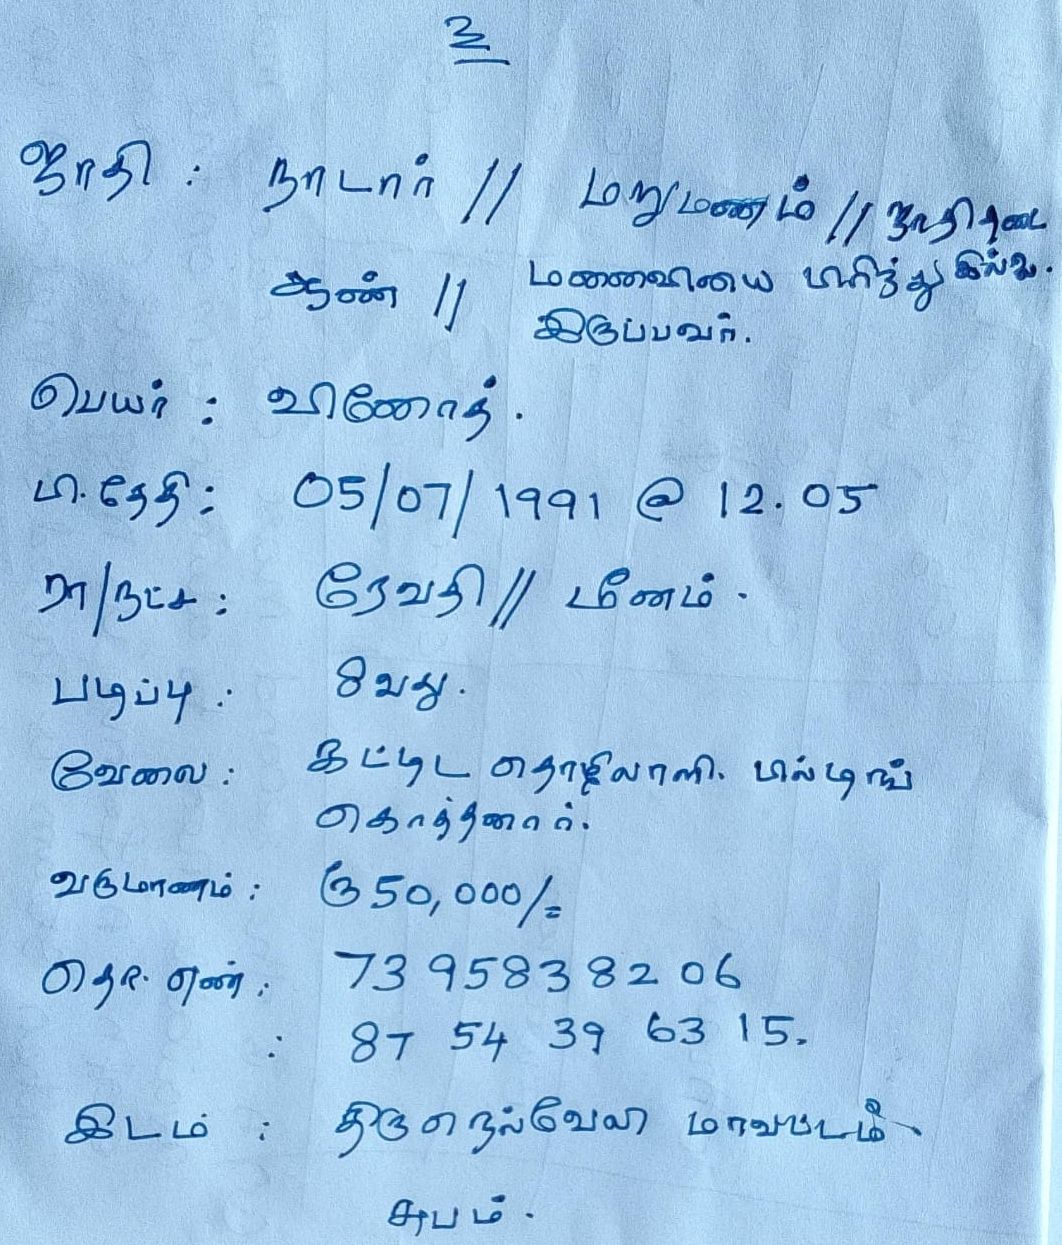 உ
ஜாதி : நாடார் // மறுமணம் // ஜாதி தடை இல்லை.
ஆண் // மனைவியை பிரிந்து
இருப்பவர்.
பெயர் : வினோத்.
பி.தேதி : 05/07/1991 @ 12.05
ரா/நட்ச : ரேவதி // மீனம்.
படிப்பு : 8வது.
வேலை : கட்டிட தொழிலாளி. பில்டிங்
கொத்தனார்.
வருமாணம் : ரூ 50,000/=
தொ. எண் : 73 95838206
: 87 54 39 63 15.
இடம் : திருநெல்வேலி மாவட்டம்.
சுபம்.